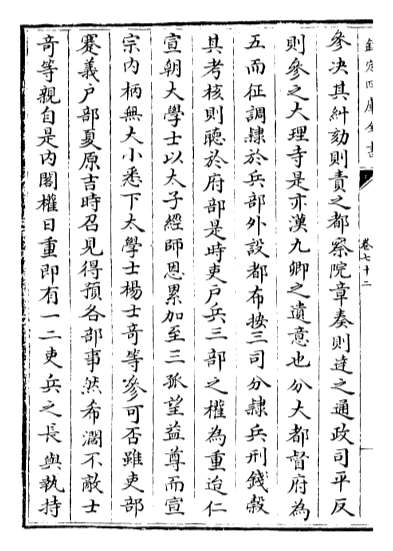 欽定四庫全書
卷七十二
參决其糾劾則責之都察院章奏則達之通政司平反
則參之大理寺是亦漢九卿之遺意也分大都督府為
五而征調隷於兵部外設都布按三司分隷兵刑錢穀
其考核則聽於府部是時吏戶兵三部之權為重迨仁
宣朝大學士以太子經師恩累加至三孤望益尊而宣
宗內柄無大小悉下大學士楊士竒等參可否雖吏部
蹇義戶部夏原吉時召見得預各部事然希濶不敵士
竒等親自是內閣權日重即有一二吏兵之長與執持